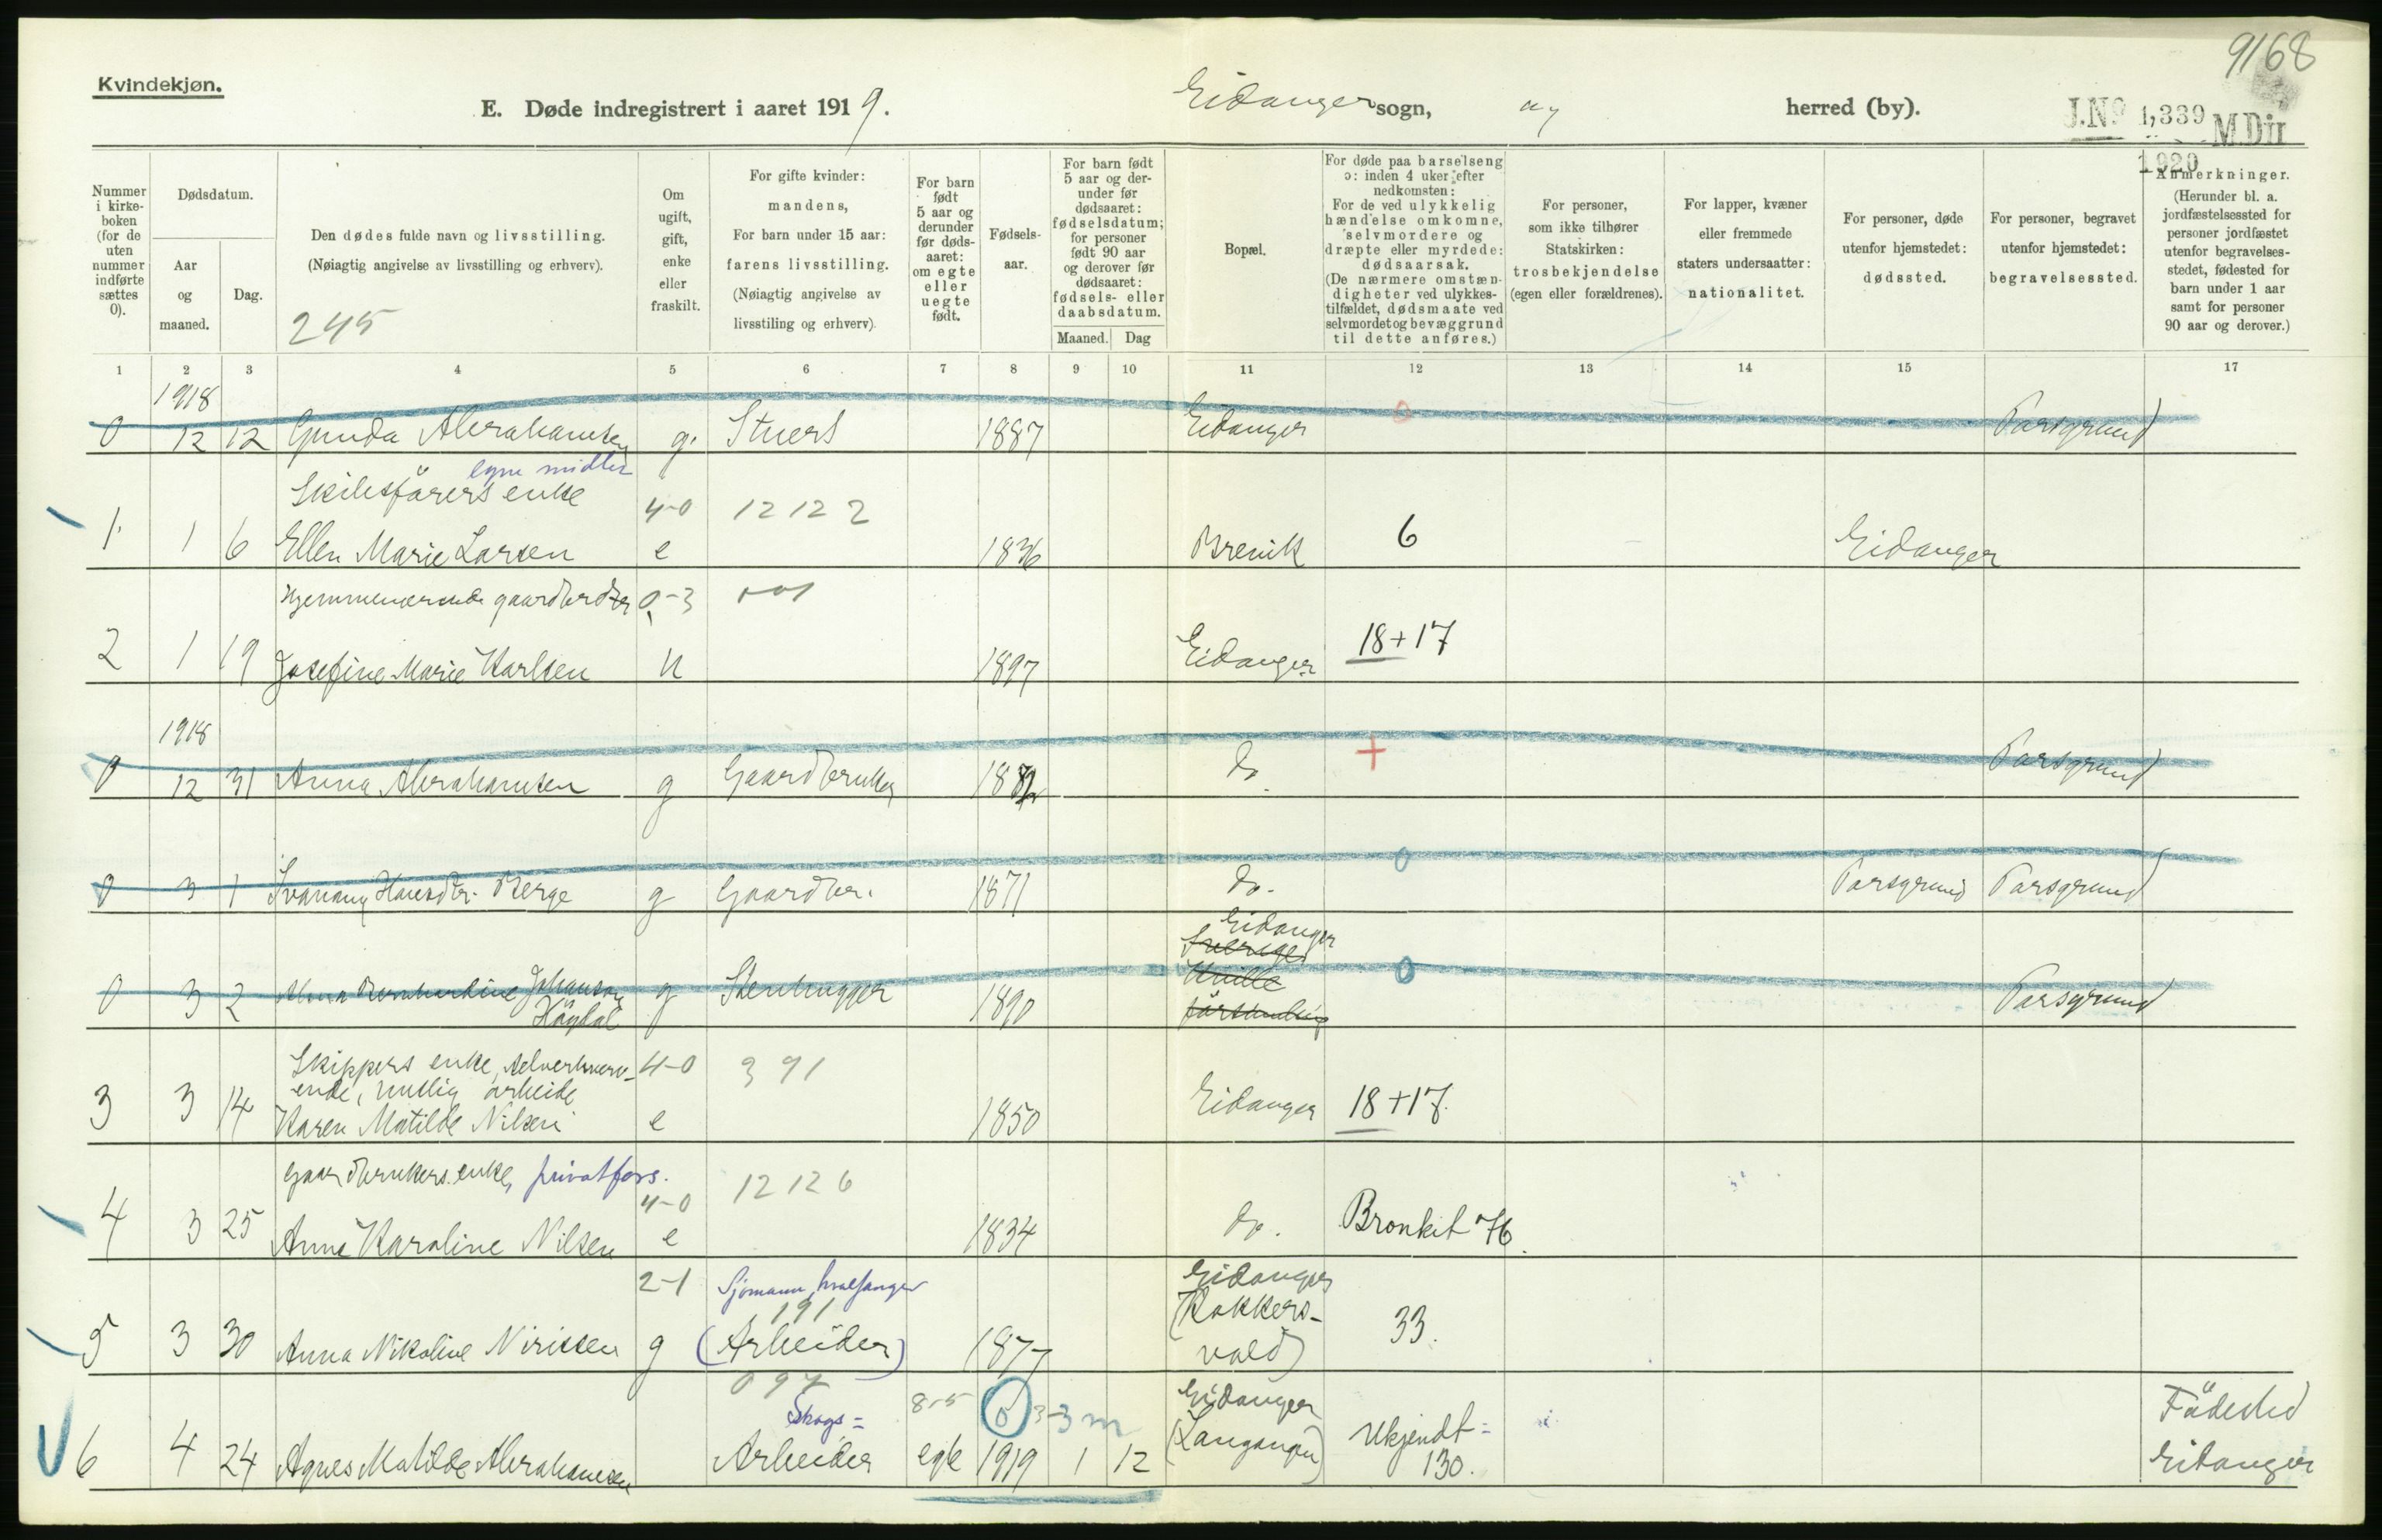 9168
Kvindekjøn.
E. Døde indregistrert i aaret 1919. Eidanger sogn, herred (by).
J.Nº 1,339 M.Dir
1920
Nummer i kirke-boken (for de uten nummer indførte sættes 0).
Dødsdatum.
Aar og maaned.
Dag.
Den dødes fulde navn og livsstilling.
(Nøiagtig angivelse av livsstilling og erhverv).
245
Om ugift, gift, enke eller fraskilt.
For gifte kvinder: mandens,
For barn under 15 aar: farens livsstilling.
(Nøiagtig angivelse av livsstiling og erhverv).
For barn født 5 aar og derunder før døds-aaret: om egte eller uegte født.
Fødsels-aar.
For barn født 5 aar og der-under før dødsaaret: fødselsdatum; for personer født 90 aar og derover før dødsaaret: fødsels- eller daabsdatum.
Maaned. Dag
Bopæl.
For døde paa barselseng ɔ: inden 4 uker efter nedkomsten:
For de ved ulykkelig hændelse omkomne, selvmordere og dræpte eller myrdede: dødsaarsak.
(De nærmere omstæn-digheter ved ulykkes-tilfældet, dødsmaate ved selvmordet og bevæggrund til dette anføres.)
For personer, som ikke tilhører Statskirken: trosbekjendelse (egen eller forældrenes).
For lapper, kvæner eller fremmede staters undersaatter: nationalitet.
For personer, døde utenfor hjemstedet: dødssted.
For personer, begravet utenfor hjemstedet: begravelsessted.
Anmerkninger.
(Herunder bl. a. jordfæstelsessted for personer jordfæstet utenfor begravelses-stedet, fødested for barn under 1 aar samt for personer 90 aar og derover.)
1 2 3 4 5 6 7 8 9 10 11 12 13 14 15 17
1918
0 12 12 Gunda Abrahamsen g. Stuert 1887 Eidanger 0 Porsgrund
egne midler
Skibsførers enke 4-0 12 12 2
1. 1 6 Ellen Marie Larsen e 1836 Brevik 6 Eidanger
Hjemmeværende gaardbrdtr 0-3
2 1 19 Josefine Marie Karlsen u 1897 Eidanger 18+17
1918
0 12 31 Anna Abrahamsen g Gaardbruker do + Porsgrund
0 3 1 Hansdtr. Berge g Gaardbr. 1871 do. 0 Porsgrund Porsgrund
Eidanger
0 3 2 Bernhardine Johanson g Stenhugger 1890 0 Porsgrund
Høgdal
Skippers enke, selverhverv- 4-0 3 91
ende, huslig arbeide
3 3 14 Karen Matilde Nilsen e 1850 Eidanger 18+17.
Gaardbrukers enke, privat fors. 4-0 12 12 6
4 3 25 Anne Karoline Nilsen e 1834 do. Bronkit 76.
2-1 Sjømann, hvalfanger Eidanger
191 (Kokkers-
5 3 30 Anna Nikoline Nirissen g (Arbeider) 1877 vold) 33.
097 8-5 0 3-3 m Eidanger Fødested
Skogs=
6 4 24 Agnes Matilde Abrahamsen Arbeider egte 1919 1 12 (Langangen) Ukjendt= 130. Eidanger